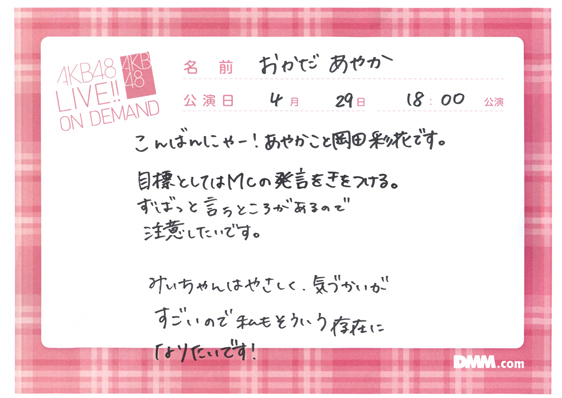 AKB48
LIVE!!
ON DEMAND
AKB
48
名前 おかだ あやか
公演日 4月 29日 18:00 公演
こんばんにゃー!あやかこと岡田彩花です。
目標としてはMCの発言をきをつける。
ずばっと言うところがあるので
注意したいです。
みぃちゃんはやさしく、気づかいが
すごいので私もそういう存在に
なりたいです!
DMM.com